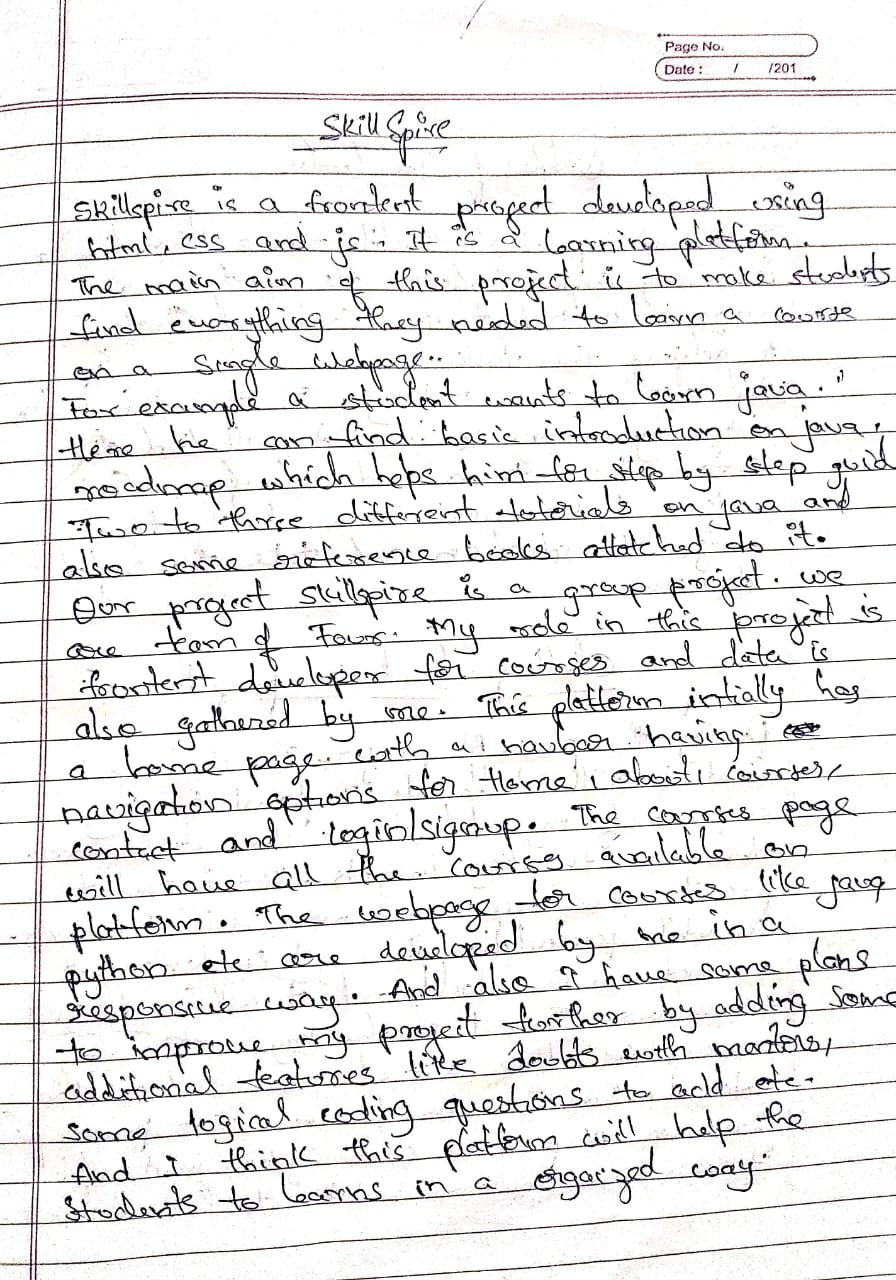 Page No.
Date : / /201
SkillSpire
Skillspire is a frontent project developed using
html, css and js. It is a learning platform.
The main aim of this project is to make students
find everything they needed to learn a course
on a Single Webpage..
For example a student wants to learn java.
Here he can find basic introduction on java,
roadmap which helps him for step by step guid
Two to three different tutorials on java and
also some reference books attatched do it.
Our project skillspire is a group project. we
are team of Four. My role in this project is
frontent developer for courses and data is
also gathered by me. This platform intially has
a home page with a navbar having
navigation options for Home, about, courses,
contact and login/signup. The courses page
will have all the courses available on
platform. The webpage for courses like java
python etc are developed by me in a
responsive way. And also I have some plans
to improve my project further by adding some
additional features like doubts with mentors,
some logical coding questions to add etc.
And I think this platform will help the
Students to learns in a orgaized way.